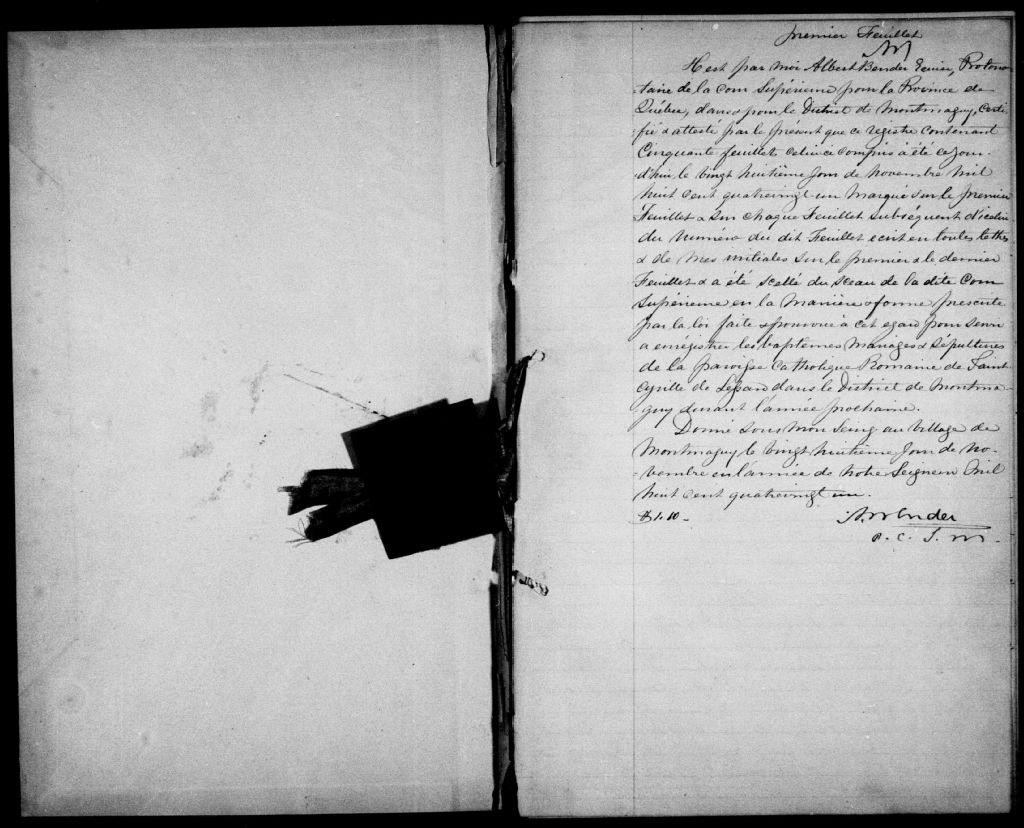 premier Feuillet
Il est par moi Albert Bender Ecuier, Protono-
-taire de la Cour Supérieure pour la Province de
Québec, dans & pour le District de Montmagny, Certi-
-fié & attesté par le présent que ce régistre Contenant
Cinquante feuillet celui ci compris a été ce jour-
-d'hui, le vingt huitième Jour de novembre Mil
huit Cent quatrevingt un Marqué sur le premier
Feuillet & sur chaque Feuillet subséquent d'icelui
du Numéro du dit Feuillet ecrit en toutes lettres
& de Mes initiales sur le premier & le dernier
Feuillet & a été scellé du sceau de la dite Cour
Supérieure en la Manière & forme prescrite
par la loi faite & pourvue à cet egard pour servir
a enrégistrer les baptemes Mariages & Sépultures
de la paroisse Catholique Romaine de Saint
Cyrille de Lessard dans le District de Montma-
-gny durant l'année prochaine.
Donné sous mon Seing au Village de
Montmagny, le vingt huitième Jour de No-
-vembre en l'année de Notre Seigneur Mil
huit Cent quatrevingt un.
$1.10 - A. Bender
P. C. S. M.